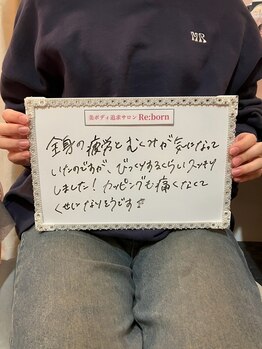 MR
美ボディ追求サロン Re:born
全身の疲労とむくみが気になって
いたのですが、びっくりするくらいスッキリ
しました！カッピングも痛くなくて
くせになりそうです